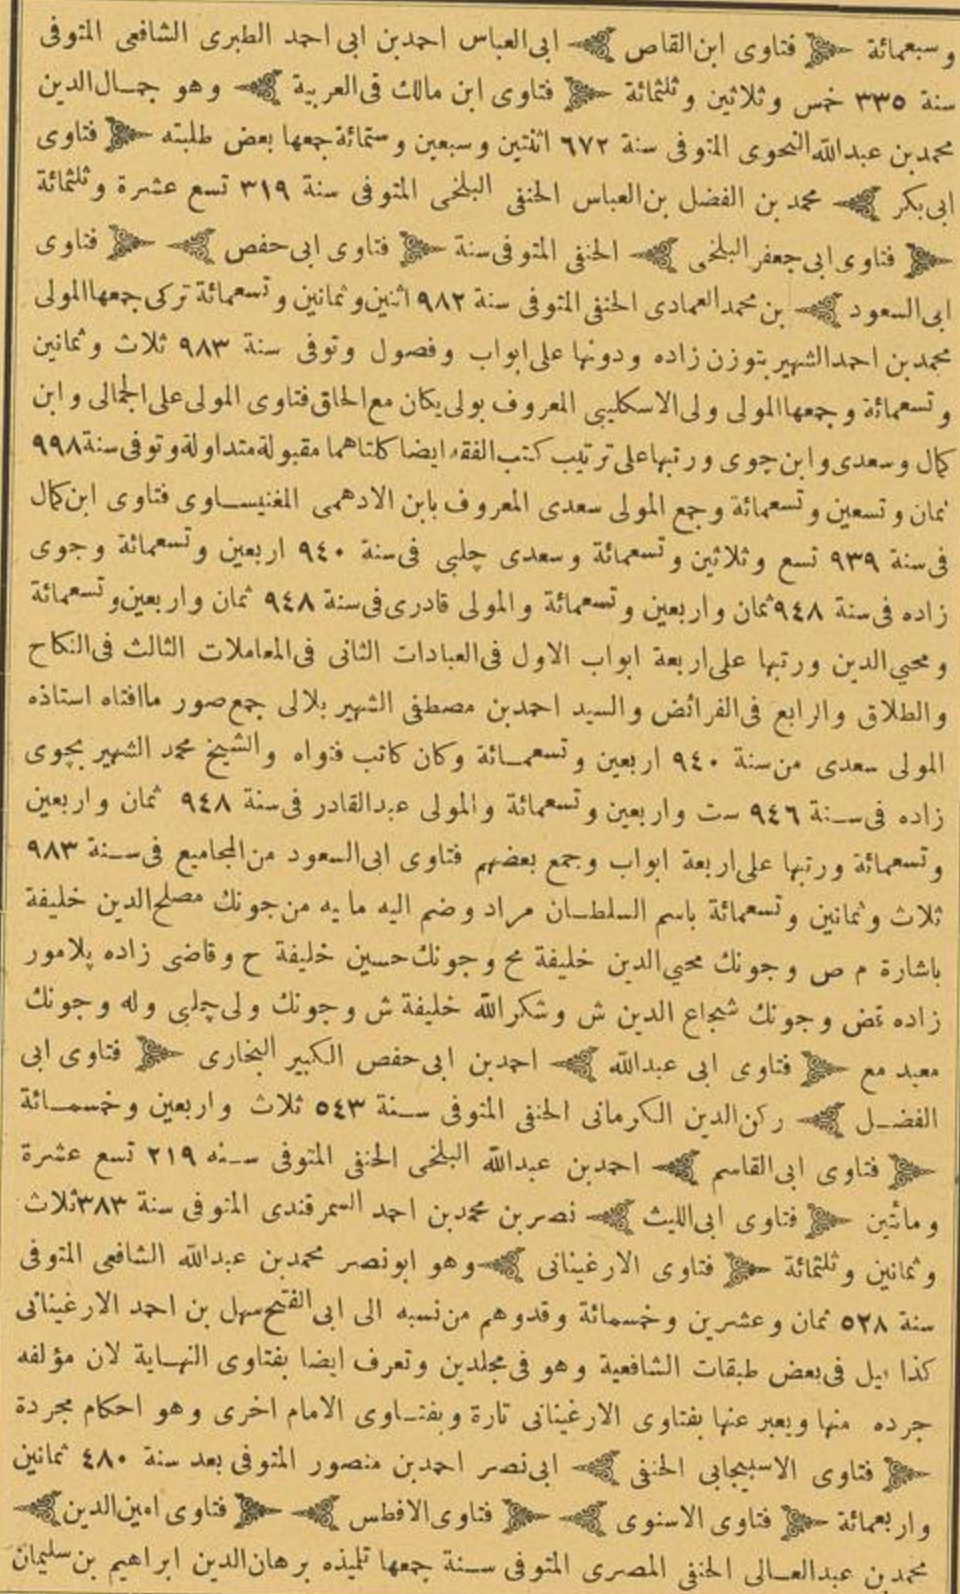 وسبعمائة فتاوى ابن القاص ابى العباس احمد بن ابى احمد الطبرى الشافعى المتوفى
سنة ٣٣٥ خمس وثلاثين وثلثمائة فتاوى ابن مالك فى العربية وهو جمال الدين
محمد بن عبدالله النحوى المتوفى سنة ٦٧٢ اثنتين وسبعين وستمائة جمعها بعض طلبته فتاوى
ابى بكر محمد بن الفضل بن العباس الحنفى البلخى المتوفى سنة ٣١٩ تسع عشرة وثلثمائة
فتاوى ابى جعفر البلخى الحنفى المتوفى سنة فتاوى ابى حفص فتاوى
ابى السعود بن محمد العمادى الحنفى المتوفى سنة ٩٨٢ اثنين وثمانين وتسعمائة تركى جمعها المولى
محمد بن احمد الشهير بتوزن زاده ودونها على ابواب وفصول وتوفى سنة ٩٨٣ ثلاث وثمانين
وتسعمائة وجمعها المولى ولى الاسكليبى المعروف بولى يكان مع الحاق فتاوى المولى على الجمالى وابن
كمال وسعدى وابن جوى ورتبها على ترتيب كتب الفقه ايضا كلتاهما مقبولة متداولة وتوفى سنة ٩٩٨
ثمان وتسعين وتسعمائة وجمع المولى سعدى المعروف بابن الادهمى المغنيساوى فتاوى ابن كمال
فى سنة ٩٣٩ تسع وثلاثين وتسعمائة وسعدى چلبى فى سنة ٩٤٠ اربعين وتسعمائة وجوى
زاده فى سنة ٩٤٨ ثمان واربعين وتسعمائة والمولى قادرى فى سنة ٩٤٨ ثمان واربعين وتسعمائة
ومحيى الدين ورتبها على اربعة ابواب الاول فى العبادات الثانى فى المعاملات الثالث فى النكاح
والطلاق والرابع فى الفرائض والسيد احمد بن مصطفى الشهير بلالى جمع صور ماافتاه استاذه
المولى سعدى من سنة ٩٤٠ اربعين وتسعمائة وكان كاتب فتواه والشيخ محمد الشهير بجوى
زاده فى سنة ٩٤٦ ست واربعين وتسعمائة والمولى عبدالقادر فى سنة ٩٤٨ ثمان واربعين
وتسعمائة ورتبها على اربعة ابواب وجمع بعضهم فتاوى ابى السعود من المجاميع فى سنة ٩٨٣
ثلاث وثمانين وتسعمائة باسم السلطان مراد وضم اليه ما يه من جونك مصلح الدين خليفة
باشارة م ص وجونك محيى الدين خليفة مح وجونك حسين خليفة ح وقاضى زاده پلامور
زاده وجونك شجاع الدين ش وشكرالله خليفة ش وجونك ولى چلبى وله وجونك
معيد مع فتاوى ابى عبدالله احمد بن ابى حفص الكبير البخارى فتاوى ابى
الفضل ركن الدين الكرمانى الحنفى المتوفى سنة ٥٤٣ ثلاث واربعين وخمسمائة
فتاوى ابى القاسم احمد بن عبدالله البلخى الحنفى المتوفى سنه ٢١٩ تسع عشرة
ومائتين فتاوى ابى الليث نصر بن محمد بن احمد السمرقندى المتوفى سنة ٣٨٣ ثلاث
وثمانين وثلثمائة فتاوى الارغينانى وهو ابونصر محمد بن عبدالله الشافعى المتوفى
سنة ٥٢٨ ثمان وعشرين وخمسمائة وقدوهم من نسبه الى ابى الفتح سهل بن احمد الارغينانى
كذا يل فى بعض طبقات الشافعية وهو فى مجلدين وتعرف ايضا بفتاوى النهاية لان مؤلفه
جرده منها ويعبر عنها بفتاوى الارغينانى تارة وبفتاوى الامام اخرى وهو احكام مجردة
فتاوى الاسبيجابى الحنفى ابى نصر احمد بن منصور المتوفى بعد سنة ٤٨٠ ثمانين
واربعمائة فتاوى الاسنوى فتاوى الافطس فتاوى امين الدين
محمد بن عبدالعالى الحنفى المصرى المتوفى سنة جمعها تلميذه برهان الدين ابراهيم بن سليمان